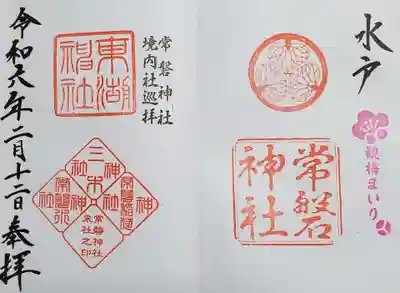 水戸
観梅まいり
常磐
神社
常磐神社
境内社巡拝
東湖
神社
三木
神社
常磐神社
末社之印
令和六年二月十二日奉拝